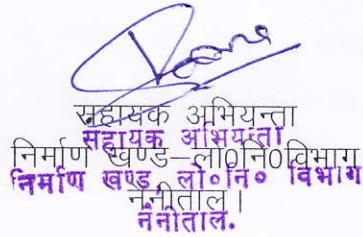 सहायक अभियन्ता
सहायक अभियन्ता
निर्माण खण्ड–लो०नि०विभाग
निर्माण खण्ड, लो०नि० विभाग
नैनीताल।
नैनीताल.